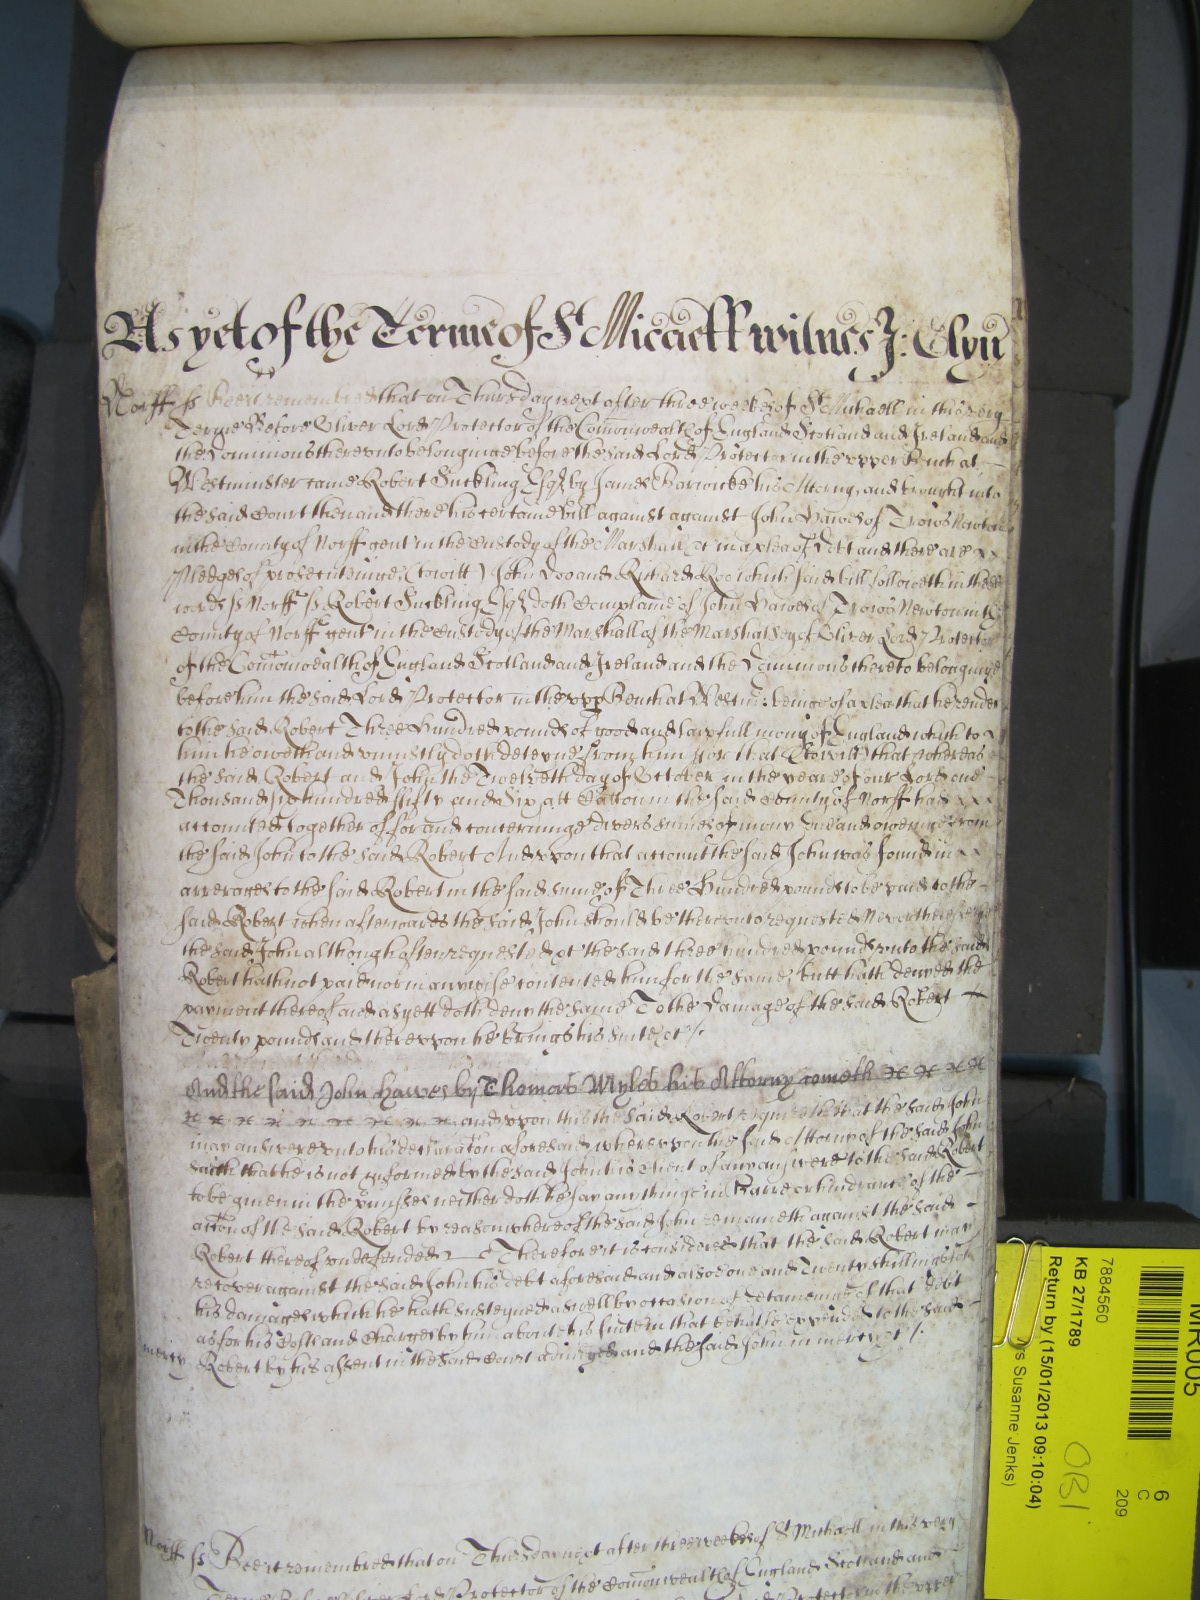 As yet of the Terme of St Micaell witnes J: Glyn
Norff ss Bee it remembred that on Thursday next after three weekes of St Michaell in this very
Terme Before Oliver Lord Protector of the Comonwealth of England Scotland and Ireland and
the Dominions thereunto belonginge before the said Lord Protector in the upper Bench at
Westminster came Robert Suckling Esqr by James Barwicke his Attorny, and brought into
the said Court then and there his certaine Bill against against John Hawes of Trows Newton
in the County of Norff gent in the Custody of the Marshall &c in a plea of Debt and there are
Pledges of prosecutinge (towitt) John Doo and Richard Roo which said bill followeth in these
words ss Norff ss Robert Suckling Esqr doth Complaine of John Hawes of Trows Newton in the
County of Norff gent in the Custody of the Marshall of the Marshalsey of Oliver Lord Protector
of the Comonwealth of England Scotland and Ireland and the Dominions thereto belonginge
before him the said Lord Protector in the upp Bench at Westmr: beinge of a plea that he render
to the said Robert Three Hundred pounds of good and lawfull mony of England which to
him he oweth and uniustly doth deteyne from him For that (towitt) that whereas
the said Robert and John the Twelveth day of October in the yeare of our Lord one
Thousand six hundred fifty and Six att Catton in the said County of Norff had
accounted together of for and concerninge divers sumes of mony due and oweinge from
the said John to the said Robert And upon that account the said John was found in
arrerages to the said Robert in the said sume of Three Hundred pounds to be paid to the
said Robert when afterwards the said John should be thereunto requested Neverthelesse
the said John although often requested &c the said three hundred pounds unto the said
Robert hath not paid nor in any wise contented him for the same, butt hath denyed the
payment thereof and as yett doth deny the same To the Damage of the said Robert
Twenty pounds and thereupon he brings his suite &c
And the said John Hawes by Thomas Myles his Attorny cometh
and upon this the said Robert requireth that the said John
may answere unto his declaracon aforesaid, whereupon the said Attorny of the said John
saith that he is not informed by the said John his Client of any answere to the said Robert
to be given in the pmisses neither doth he say any thinge in Barre or hindrance of the
accon of the said Robert by reason whereof the said John remaineth against the said
Robert thereof undefended Therefore it is considered that the said Robert may
recover against the said John his debt aforesaid and also one and Twenty shillings for
his damages which he hath susteyned aswell by occasion of deteineing of that debt
as for his Costs and Charges by him about his suite in that behalfe expended to the said
mercy Robert by his assent in the said Court adiudged and the said John in mercy &c
Norff ss Bee it remembred that on Thursday next after three weekes of St Michaell in this very
Terme Before Oliver Lord Protector of the Comonwealth of England Scotland and
Protector in the upper
MR005
6
C
209
7884560
KB 27/1789
Return by (15/01/2013 09:10:04)
s Susanne Jenks)
OBI